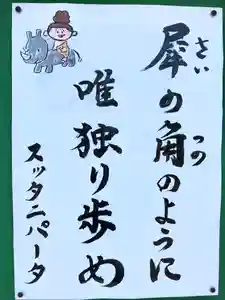 犀の角のように
さい
つの
唯独り歩め
スッタニパータ